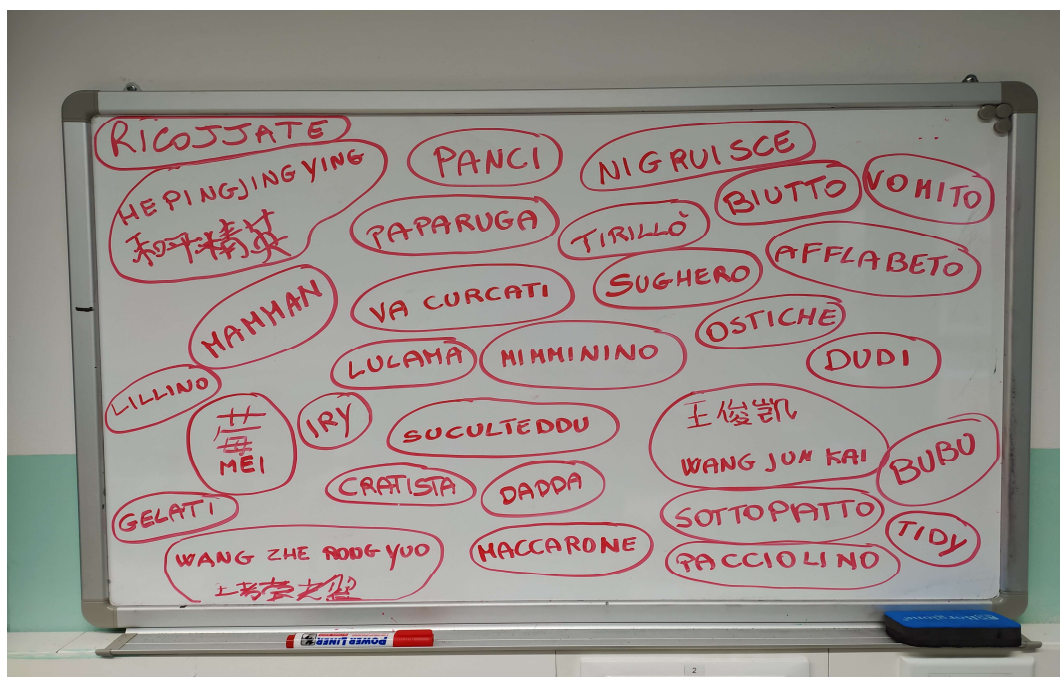 RICOJJATE
PANCI
NIGRUISCE
HEPINGJINGYING
和平精英
BIUTTO
VOMITO
PAPARUGA
TIRILLÒ
AFFLABETO
SUGHERO
MAMMAN
VA CURCATI
OSTICHE
LULAMÀ
MIMMININO
DUDI
LILLINO
莓
MEI
IRY
SUCULTEDDU
王俊凯
WANG JUN KAI
BUBU
CRATISTA
DADDA
GELATI
SOTTOPIATTO
TIDY
WANG ZHE RONG YUO
MACCARONE
PACCIOLINO
POWER LINER
2